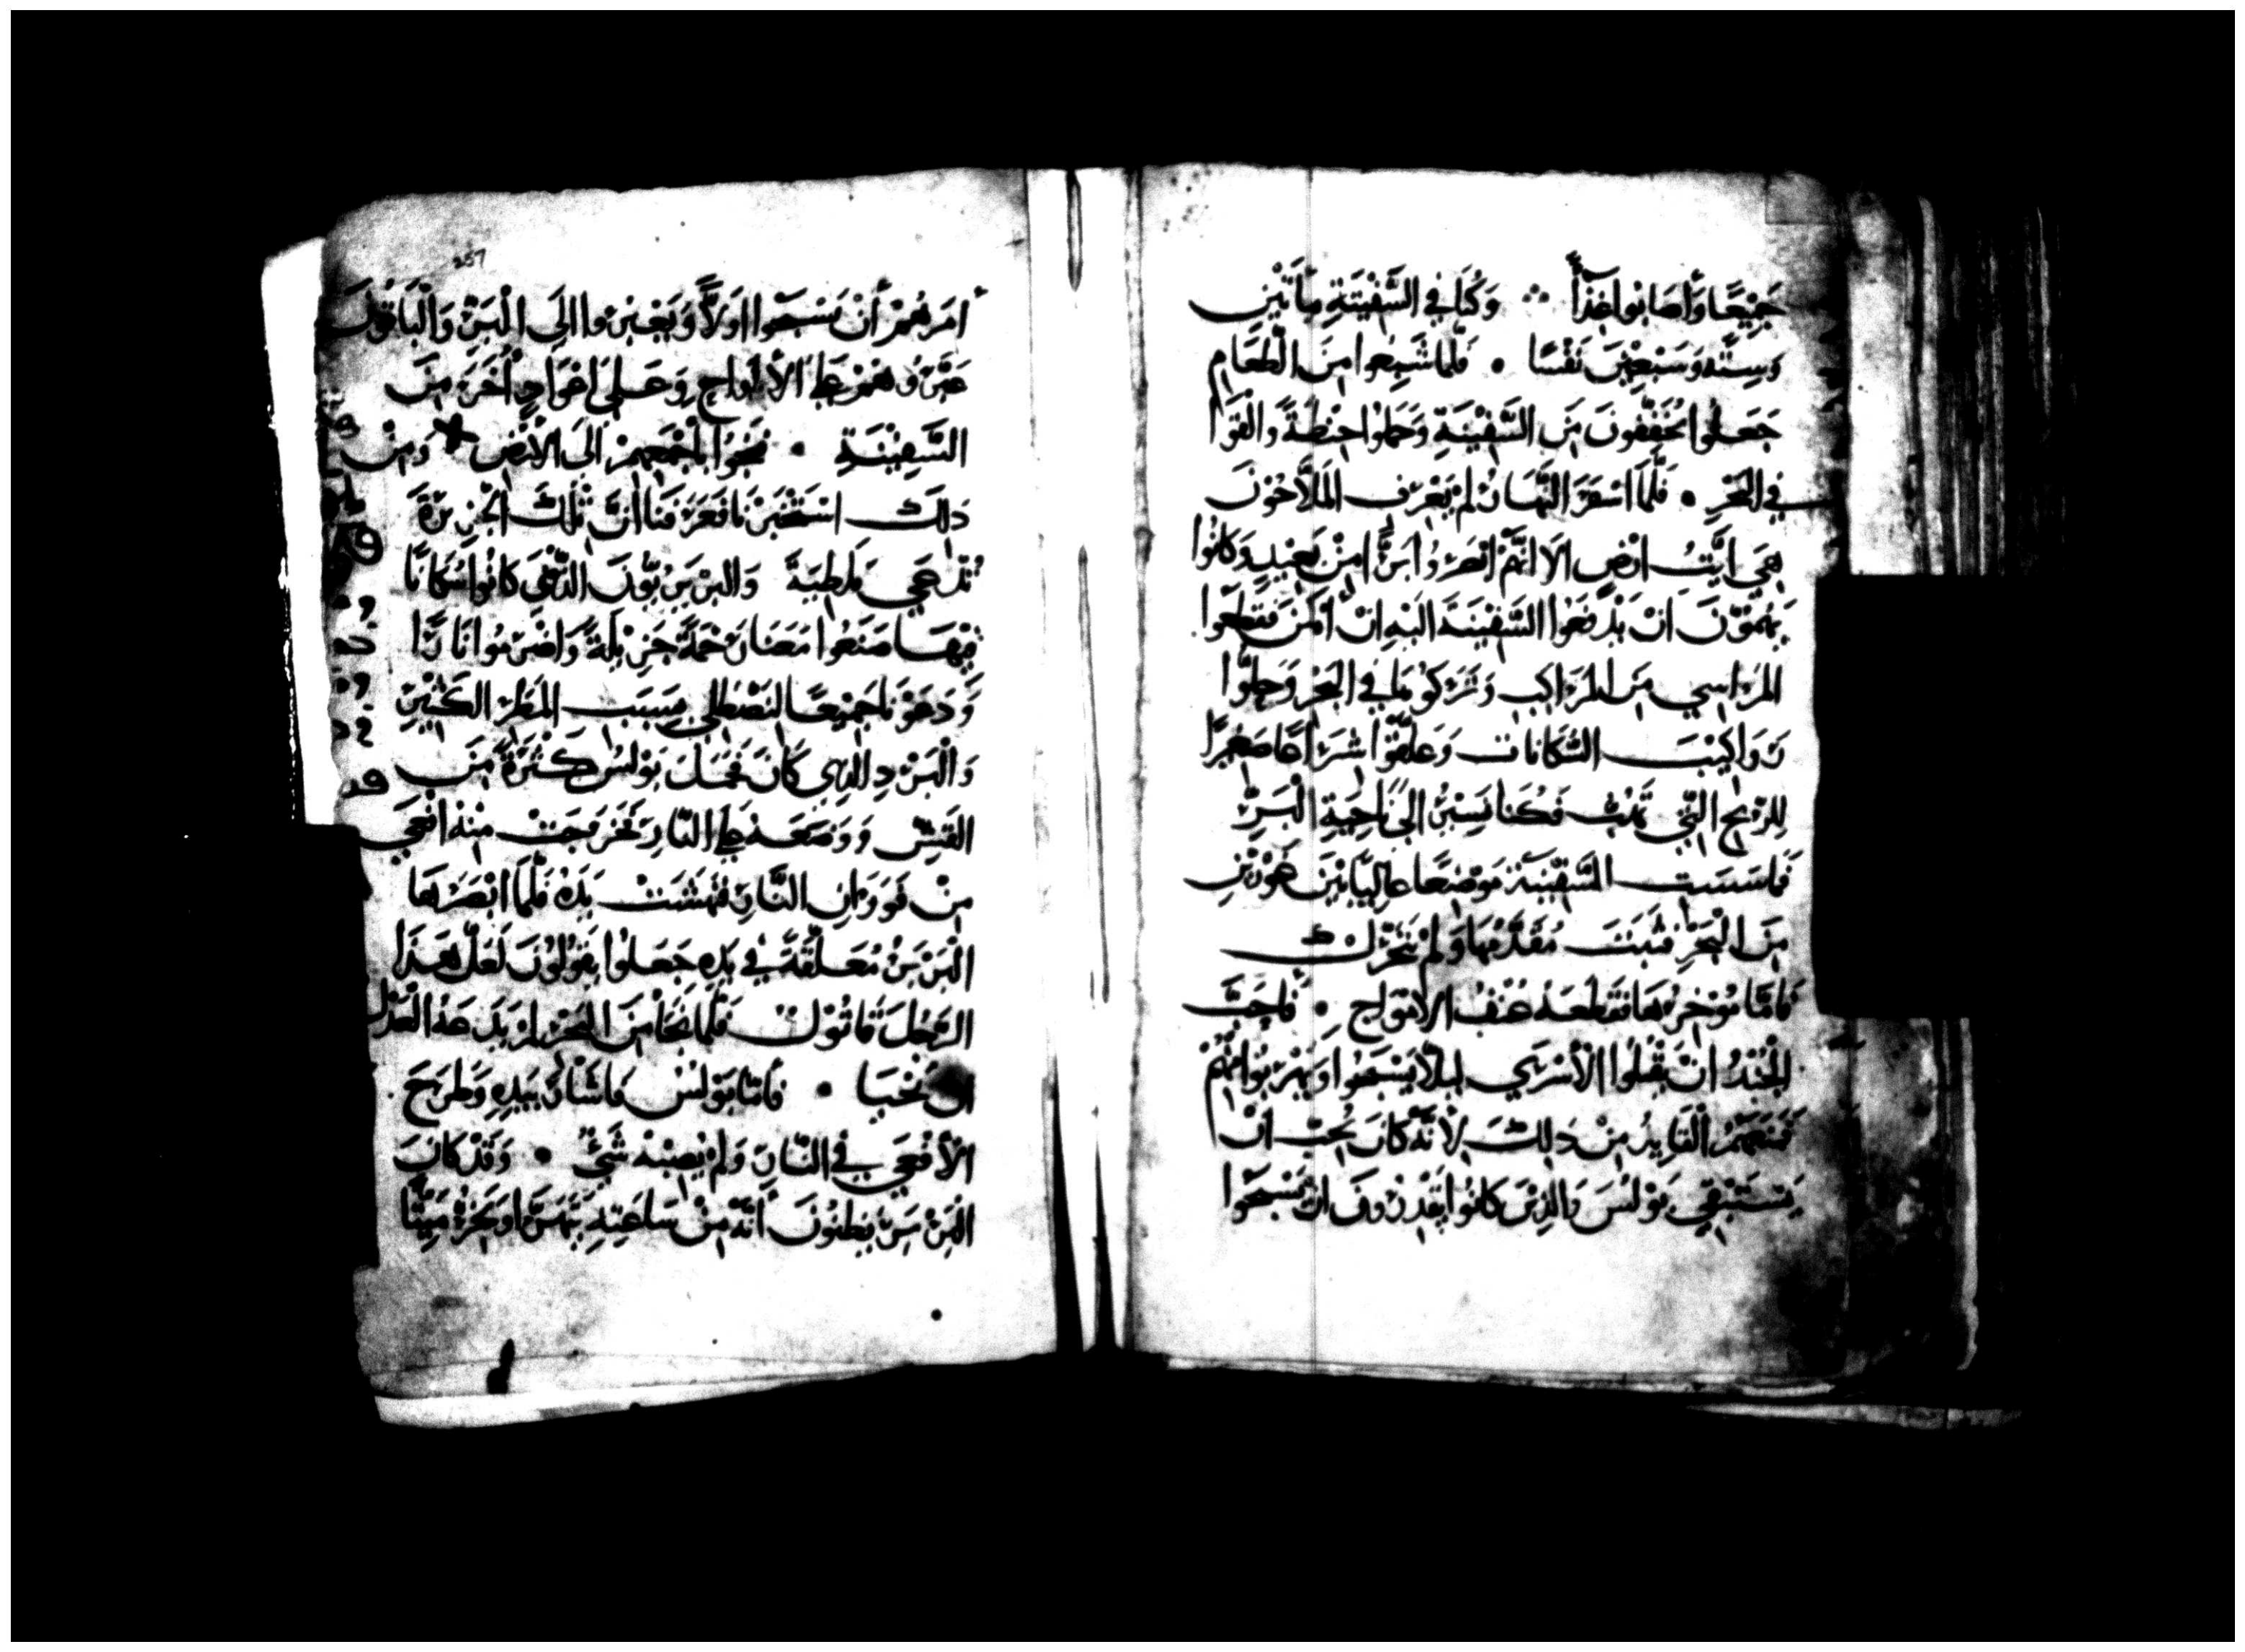 جَمِيْعًا وَأَصَابُوا غِذَأً ∴ وَكُنَا فِي السَّفِيْنَةِ مِأتَيْنِ
وَسِتَّه وَسَبْعِيْنَ نَفْسًا • فَلَمَا شَبِعُوا مِنَ الْطَعَامِ
جَعَلُوا يُخَفِّفُونَ مِنَ السَّفِيْنَةِ وَحَمَلوْا حِنْطَةً وَالْقَوْا
فِي البَحْرِ • فَلَمَّا اسْفَرَ النَّهَارُ لَمْ يَعْرِف المَلاَّحُوْنَ
هِيَ ايَّتُ ارْضٍ الاَ انَّهُمْ ابْصَرُوْا بَرًّا مِنْ بَعِيْدٍ وَكَانُوا
يَهِمُّوْنَ انْ يَدْفَعُوا السَّفِيْنَةَ الَيْهِ انْ امْكَنَ فَقَطَعُوا
المَرَاسِي مِنَ المَرَاكِبِ وَتَرَكوْهَا فِي البَحْرِ وَحَلُّوْا
رَوَاكِيْبَ السُّكَانَات وَعَلَّقَوْا شِرَاعًا صَغِيْرًا
لِلرِّيْحِ الَّتِي تَهُبُّ فَكُنَا نَسِيْرُ الَىَ نَاحِيَةِ الْبَرِّ
فَمَاسَسَتِ السَّفِيْنَة مَوْضِعًا عَالِيًا بَيْنَ غَوْرَيْنِ
مِنَ الْبَحْرِ فَثَبَتَ مُقَدَّمُهَا وَلَمْ يَتَحَرَّك
فَامَّا مُوْخِرُهَا فَقَطَعَهُ عُنْفُ الاَمْوَاجِ • فَاحَبَّ
الجُنْدُ انْ يَقْتُلُوا الأُسْرَىِ لِيَلاَّ يَسْبَحُوا وَيَهْرَبُوا مِنْهُمْ
فَمَنَعَهُمْ القَايِدُ مِنْ ذَلِكَ لاَنَّهُ كَانَ يُحِبّ انْ
يَسْتَبْقِي بَوْلُسَ وَالذِيْنَ كَانُوا يَقْدِرُوْنَ انْ يَسْبَحُوْا
257
أَمَرَهُمْ أَنْ يَسْبَحُوْا اوَلاً وَيَعْبِرُوا الَى الْبَرِّ وَالْبَاقُونَ
عَبَّرُوْهُمْ عَلىَ الأَلْوَاحِ وَعَلىَ اعْوَادٍ أُخَرَ مِنَ
السَّفِيْنَةِ • فَنَجُوْا باجْمَعِهِمْ الَى الاَرْضِ ✕ وَمِنْ
ذلَكَ اسْتَخْبَرْنَا فَعَرَفْنَا انَّ تْلِكَ الجَزِيْرَةَ
تُدْعَي مَلِطِيَة وَالبَرْبَرِيُّونَ الذَّيْنَ كَانُوا سُكَانًا
فِيْهَا صَنَعُوا مَعَنَا رَحْمَةً جَزِيْلَةً وَاضْرَمُوا نَارًا
وَدَعَوْنَا جَمِيْعًا لنَصْطَلِي بِسَبَبِ المَطَرِ الكَثِيْرِ
وَالْبَرْدِ الذِي كَانَ فَحَمَلَ بَوْلسُ كَثْرَةً مِنَ
القَشِّ وَوَضَعَهُ عَلىَ النَّارِ فَخَرَجَتْ مِنْه افْعَي
مِنْ فَوَرَانِ النَّارِ فَنَهَشَتْ يَدَهُ فَلَمَّا ابْصَرَهَا
البَرْبَرُ مُعَلَّقَةً فِي يَدِهِ جَعَلُوا يَقُوْلُوْنَ لَعَلّ هَذَا
الرَّجُلَ قَاتُوْلٌ فَلَمَّا نَجَا مِنَ البَحْرِ لَمْ يَدَعهُ العَدْل
ان يَحْيَا • فَامَّا بَوْلسُ فَاشَارَ بيَدِهِ وَطَرَحَ
الأَفْعَي فِي النَّارِ وَلَمْ يُصِبْهُ شَيٌّ • وَقَدْ كَانَ
البَرْبَرُ يَظنُونَ انَّهُ مِنْ سَاعَتِهِ يَتَهَرَّا وَيَخِرُّ مَيْتًا